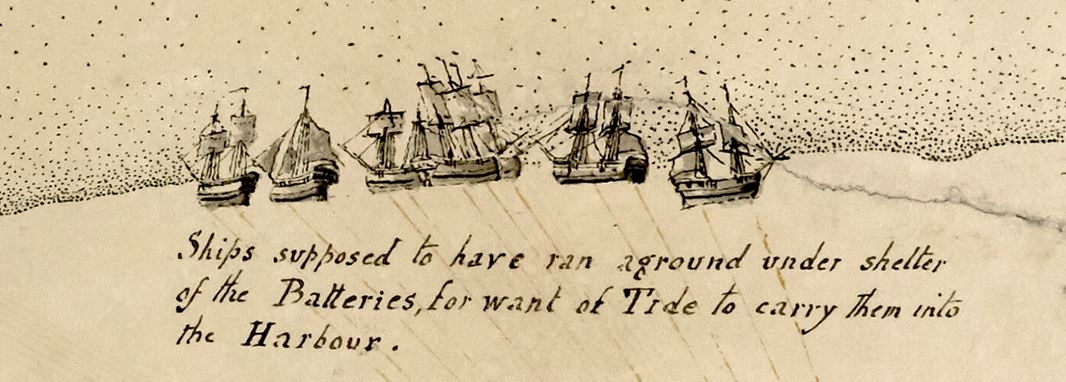 Ships supposed to have ran aground under shelter
of the Batteries, for want of Tide to carry them into
the Harbour.